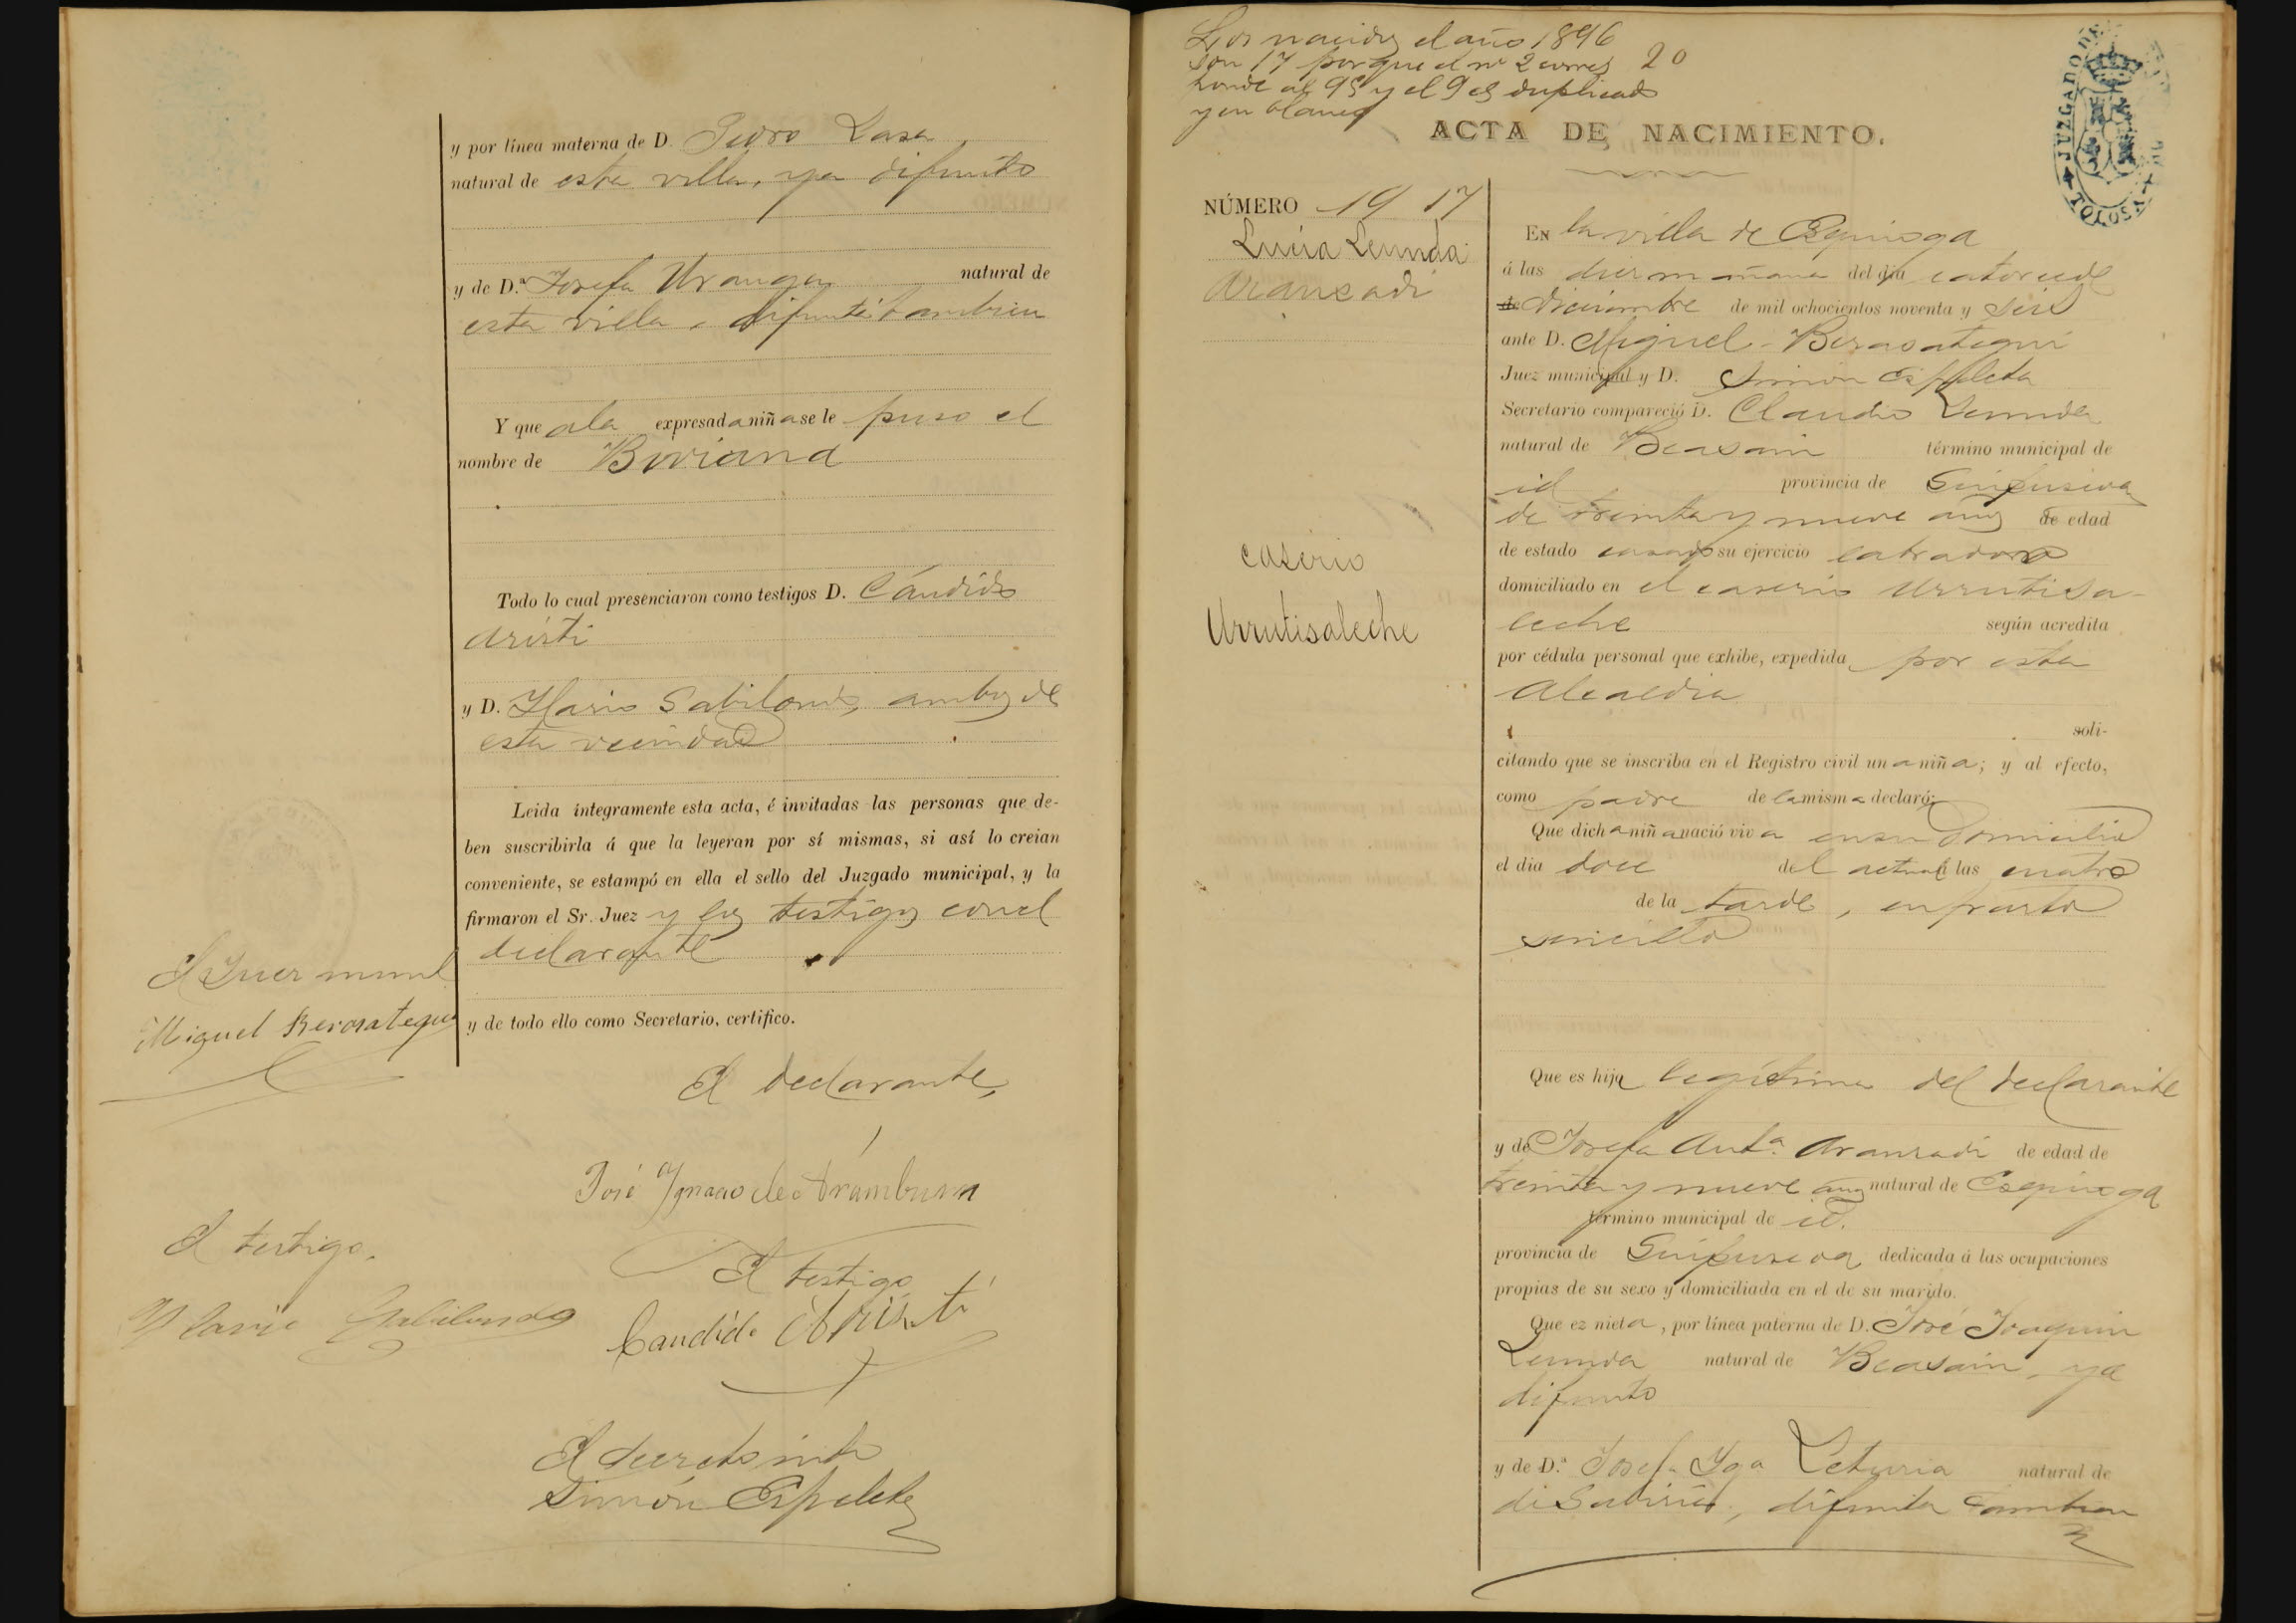 y por línea materna de D. Pedro Lasa
natural de esta villa, ya difunto
y de D.ª Josefa Uranga natural de
esta villa, difunta tambien
Y que a la expresada niña se le puso el
nombre de Biviana
Todo lo cual presenciaron como testigos D. Cándido
Aristi
y D. Ylario Gabilondo, ambos de
esta vecindad
Leida íntegramente esta acta, é invitadas las personas que de-
ben suscribirla á que la leyeran por sí mismas, si así lo creian
conveniente, se estampó en ella el sello del Juzgado municipal, y la
firmaron el Sr. Juez y los testigos con el
declarante
y de todo ello como Secretario, certifico.
El Juez munl.
Miguel Berasategui
El declarante,
José Ygnacio de Aramburu
El testigo,
Ylario Gabilondo
El testigo
Candido Aristi
El Secretario
Simón Ezpeleta
Los nacidos el año 1896
son 17 porque el nº 2 corres
ponde al 95 y el 9 es duplicado
y en blanco
20
ACTA DE NACIMIENTO.
JUZGADO
NÚMERO 19 17
Lucia Leunda
Aranzadi
caserio
Urrutisaleche
EN la villa de Ezquioga
á las diez mañana del dia catorce de
de diciembre de mil ochocientos noventa y seis
ante D. Miguel Berasategui
Juez municipal y D. Simon Ezpeleta
Secretario compareció D. Claudio Leunda
natural de Beasain término municipal de
id provincia de Guipuzcoa
de treinta y nueve años de edad
de estado casado su ejercicio labrador
domiciliado en el caserio Urrutisa-
leche según acredita
por cédula personal que exhibe, expedida por esta
Alcaldia
soli-
citando que se inscriba en el Registro civil una niña; y al efecto,
como padre de la misma declaró:
Que dicha niña nació viva en su domicilio
el dia doce del actual á las cuatro
de la tarde, en parto
sencillo
Que es hija legítima del declarante
y de Josefa Antª. Aranzadi de edad de
treinta y nueve años natural de Ezquioga
término municipal de id.
provincia de Guipuzcoa dedicada á las ocupaciones
propias de su sexo y domiciliada en el de su marido.
Que ez nieta, por línea paterna de D. José Joaquin
Leunda natural de Beasain, ya
difunto
y de D.ª Josefa Yga Leturia natural de
difunta tambien